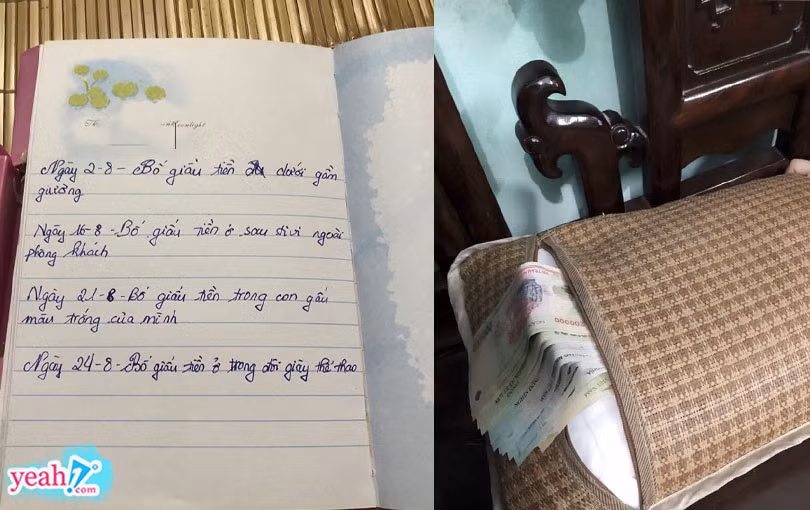 Moonlight
Ngày 2-8 - Bố giấu tiền dưới gầm
giường
Ngày 16-8 - Bố giấu tiền ở sau ti vi ngoài
phòng khách
Ngày 21-8 - Bố giấu tiền trong con gấu
màu trắng của mình
Ngày 24-8 - Bố giấu tiền ở trong đôi giày thể thao
yeah1
.com